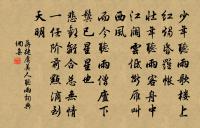 少年聽雨歌樓上
紅燭昏羅帳
壯年聽雨客舟中
江闊雲低斷雁叫
西風
而今聽雨僧廬下
鬢已星星也
悲歡離合總無情
一任階前點滴到
天明
虞美人聽雨詞